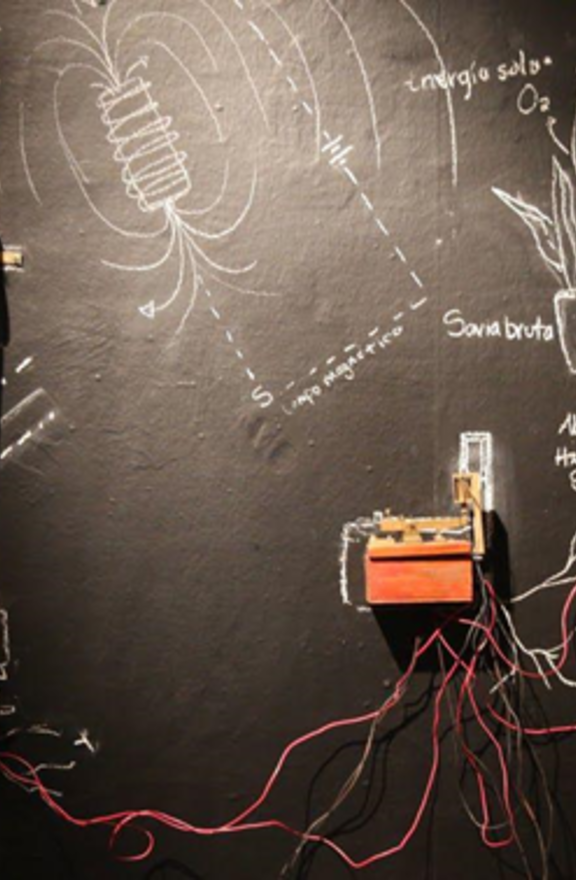 energía sola
O₂
Savia bruta
S
campo magnetico
H₂